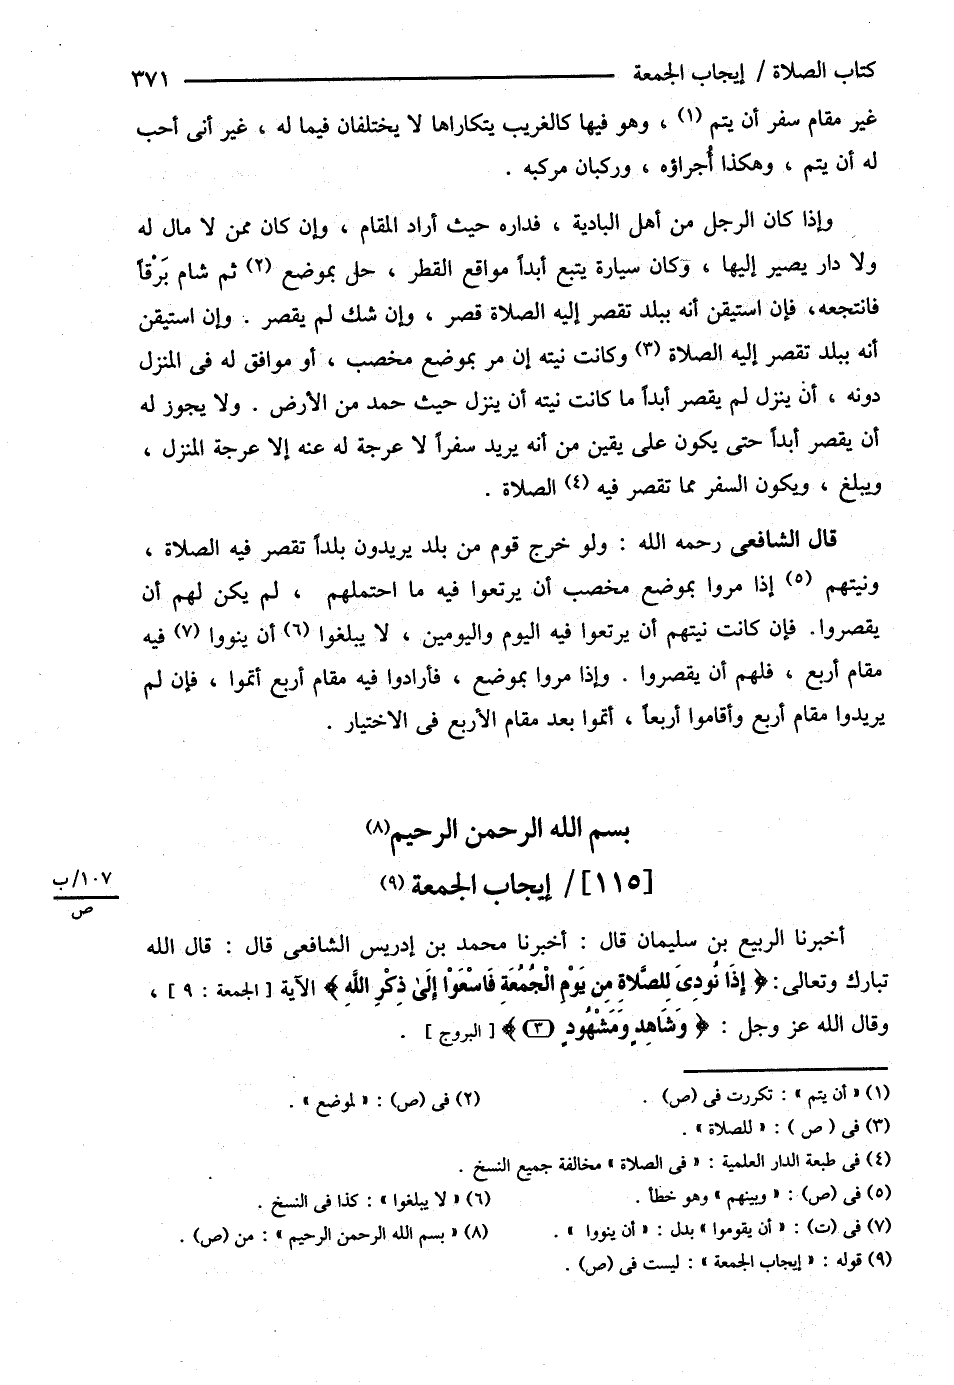 كتاب الصلاة / إيجاب الجمعة ٣٧١
غير مقام سفر أن يتم (١) ، وهو فيها كالغريب يتكاراها لا يختلفان فيما له ، غير أنى أحب
له أن يتم ، وهكذا أُجراؤه ، وركبان مركبه .
وإذا كان الرجل من أهل البادية ، فداره حيث أراد المقام ، وإن كان ممن لا مال له
ولا دار يصير إليها ، وكان سيارة يتبع أبداً مواقع القطر ، حل بموضع (٢) ثم شام بَرْقاً
فانتجعه، فإن استيقن أنه ببلد تقصر إليه الصلاة قصر ، وإن شك لم يقصر . وإن استيقن
أنه ببلد تقصر إليه الصلاة (٣) وكانت نيته إن مر بموضع مخصب ، أو موافق له فى المنزل
دونه ، أن ينزل لم يقصر أبداً ما كانت نيته أن ينزل حيث حمد من الأرض . ولا يجوز له
أن يقصر أبداً حتى يكون على يقين من أنه يريد سفراً لا عرجة له عنه إلا عرجة المنزل ،
ويبلغ ، ويكون السفر مما تقصر فيه (٤) الصلاة .
قال الشافعى رحمه الله : ولو خرج قوم من بلد يريدون بلداً تقصر فيه الصلاة ،
ونيتهم (٥) إذا مروا بموضع مخصب أن يرتعوا فيه ما احتملهم ، لم يكن لهم أن
يقصروا. فإن كانت نيتهم أن يرتعوا فيه اليوم واليومين ، لا يبلغوا (٦) أن ينووا (٧) فيه
مقام أربع ، فلهم أن يقصروا . وإذا مروا بموضع ، فأرادوا فيه مقام أربع أتموا ، فإن لم
يريدوا مقام أربع وأقاموا أربعاً ، أتموا بعد مقام الأربع فى الاختيار .
بسم الله الرحمن الرحيم(٨)
[١١٥] / إيجاب الجمعة (٩)
١٠٧/ب
ص
أخبرنا الربيع بن سليمان قال : أخبرنا محمد بن إدريس الشافعى قال : قال الله
تبارك وتعالى: ﴿ إِذَا نُودِىَ لِلصَّلاةِ مِن يَوْمِ الْجُمُعَةِ فَاسْعَوْا إِلَىٰ ذِكْرِ اللَّهِ ﴾ الآية [ الجمعة : ٩ ] ،
وقال الله عز وجل : ﴿ وَشَاهِدٍ وَمَشْهُودٍ (٣) ﴾ [ البروج ] .
(١) « أن يتم » : تكررت فى (ص) . (٢) فى (ص) : « لموضع » .
(٣) فى ( ص ) : « للصلاة » .
(٤) فى طبعة الدار العلمية : « فى الصلاة » مخالفة جميع النسخ .
(٥) فى (ص) : « وبينهم » وهو خطأ . (٦) « لا يبلغوا » : كذا فى النسخ .
(٧) فى (ت) : « أن يقوموا » بدل : « أن ينووا » . (٨) « بسم الله الرحمن الرحيم » : من (ص) .
(٩) قوله : « إيجاب الجمعة » : ليست فى (ص) .